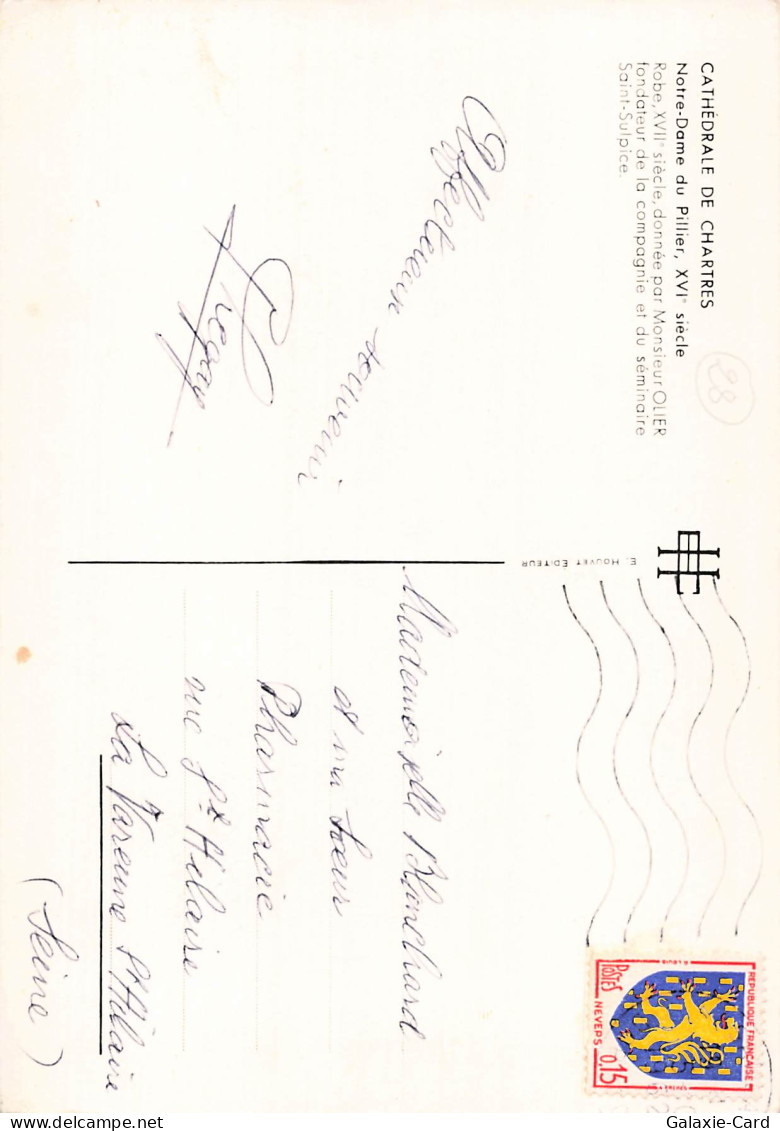 CATHÉDRALE DE CHARTRES
Notre-Dame du Pillier, XVIe siècle
Robe, XVIIe siècle, donnée par Monsieur OLIER
fondateur de la compagnie et du séminaire
Saint-Sulpice.
28
souvenir
E. HOUVET ÉDITEUR
Mademoiselle Blanchard
et ma sœur
Pharmacie
rue St Hilaire
La Varenne St Hilaire
(Seine)
RÉPUBLIQUE FRANÇAISE
POSTES
NEVERS
0,15
Galaxie-Card